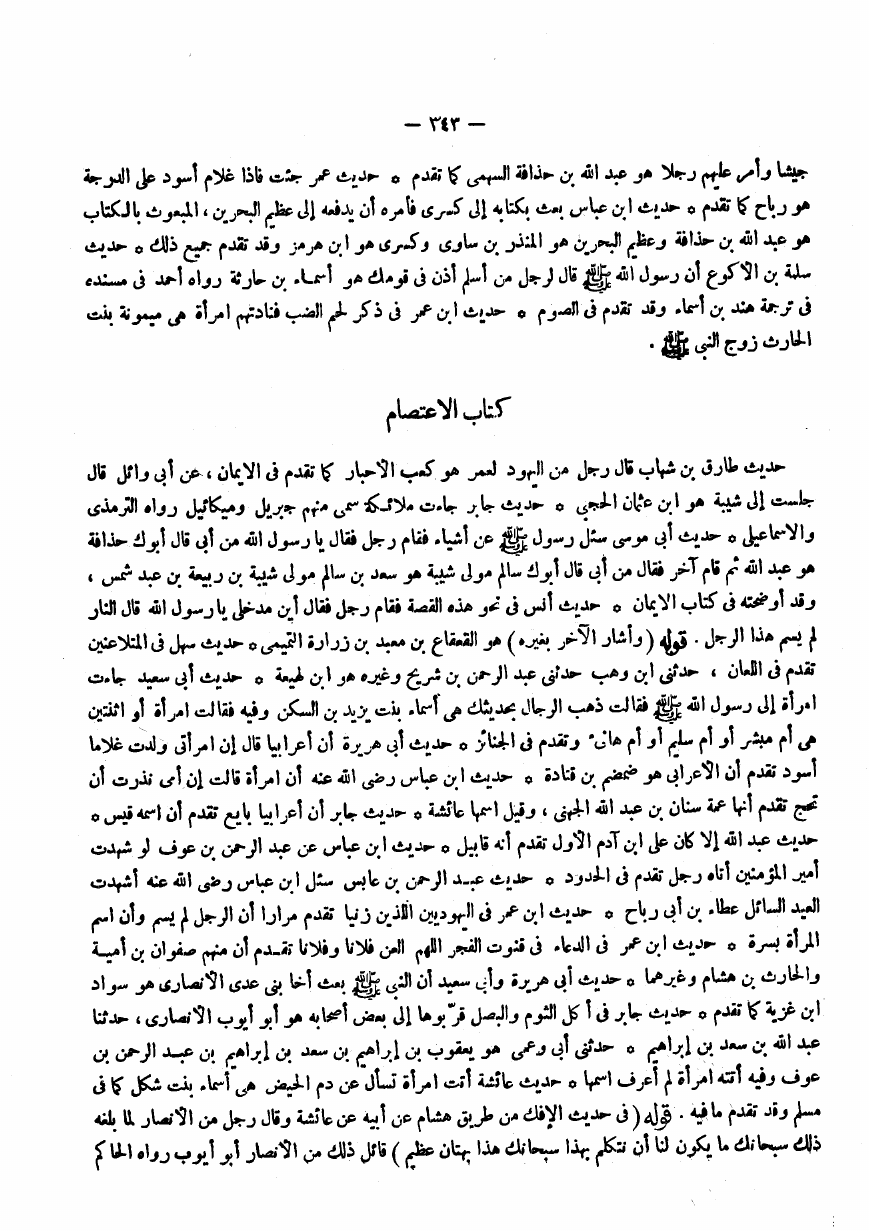 — ٣٤٣ —
جيشا وأمر عليهم رجلا هو عبد الله بن حذافة السهمى كما تقدم * حديث عمر جئت فاذا غلام أسود على الدرجة
هو رباح كما تقدم * حديث ابن عباس بعث بكتابه إلى كسرى فأمره أن يدفعه إلى عظيم البحرين ، المبعوث بالكتاب
هو عبد الله بن حذافة وعظيم البحرين هو المنذر بن ساوى وكسرى هو ابن هرمز وقد تقدم جميع ذلك * حديث
سلمة بن الأكوع أن رسول الله ﷺ قال لرجل من أسلم أذن فى قومك هو أسماء بن حارثة رواه أحمد فى مسنده
فى ترجمة هند بن أسماء وقد تقدم فى الصوم * حديث ابن عمر فى ذكر لحم الضب فنادتهم امرأة هى ميمونة بنت
الحارث زوج النبى ﷺ .
كتاب الاعتصام
حديث طارق بن شهاب قال رجل من اليهود لعمر هو كعب الأحبار كما تقدم فى الايمان ، عن أبى وائل قال
جلست إلى شيبة هو ابن عثمان الحجبى * حديث جابر جاءت ملائكة سمى منهم جبريل وميكائيل رواه الترمذى
والاسماعيلى * حديث أبى موسى سئل رسول ﷺ عن أشياء فقام رجل فقال يا رسول الله من أبى قال أبوك حذافة
هو عبد الله ثم قام آخر فقال من أبى قال أبوك سالم مولى شيبة هو سعد بن سالم مولى شيبة بن ربيعة بن عبد شمس ،
وقد أوضحته فى كتاب الايمان * حديث أنس فى نحو هذه القصة فقام رجل فقال أين مدخلى يا رسول الله قال النار
لم يسم هذا الرجل . قوله ( وأشار الآخر بغيره ) هو القعقاع بن معبد بن زرارة التميمى * حديث سهل فى المتلاعنين
تقدم فى اللعان ، حدثنى ابن وهب حدثنى عبد الرحمن بن شريح وغيره هو ابن لهيعة * حديث أبى سعيد جاءت
امرأة إلى رسول الله ﷺ فقالت ذهب الرجال بحديثك هى أسماء بنت يزيد بن السكن وفيه فقالت امرأة أو اثنتين
هى أم مبشر أو أم سليم أو أم هانىء وتقدم فى الجنائز * حديث أبى هريرة أن أعرابيا قال إن امرأتى ولدت غلاما
أسود تقدم أن الأعرابى هو ضمضم بن قتادة * حديث ابن عباس رضى الله عنه أن امرأة قالت إن أمى نذرت أن
تحج تقدم أنها عمة سنان بن عبد الله الجهنى ، وقيل اسمها عائشة * حديث جابر أن أعرابيا بايع تقدم أن اسمه قيس *
حديث عبد الله إلا كان على ابن آدم الأول تقدم أنه قابيل * حديث ابن عباس عن عبد الرحمن بن عوف لو شهدت
أمير المؤمنين أتاه رجل تقدم فى الحدود * حديث عبد الرحمن بن عابس سئل ابن عباس رضى الله عنه أشهدت
العيد السائل عطاء بن أبى رباح * حديث ابن عمر فى اليهوديين اللذين زنيا تقدم مرارا أن الرجل لم يسم وأن اسم
المرأة بسرة * حديث ابن عمر فى الدعاء فى قنوت الفجر اللهم العن فلانا وفلانا تقدم أن منهم صفوان بن أمية
والحارث بن هشام وغيرهما * حديث أبى هريرة وأبى سعيد أن النبى ﷺ بعث أخا بنى عدى الأنصارى هو سواد
ابن غزية كما تقدم * حديث جابر فى أكل الثوم والبصل قرّبوها إلى بعض أصحابه هو أبو أيوب الأنصارى ، حدثنا
عبد الله بن سعد بن إبراهيم * حدثنى أبى وعمى هو يعقوب بن إبراهيم بن سعد بن إبراهيم بن عبد الرحمن بن
عوف وفيه أتته امرأة لم أعرف اسمها * حديث عائشة أتت امرأة تسأل عن دم الحيض هى أسماء بنت شكل كما فى
مسلم وقد تقدم ما فيه . قوله ( فى حديث الإفك من طريق هشام عن أبيه عن عائشة وقال رجل من الأنصار لما بلغه
ذلك سبحانك ما يكون لنا أن نتكلم بهذا سبحانك هذا بهتان عظيم ) قائل ذلك من الأنصار أبو أيوب رواه الحاكم